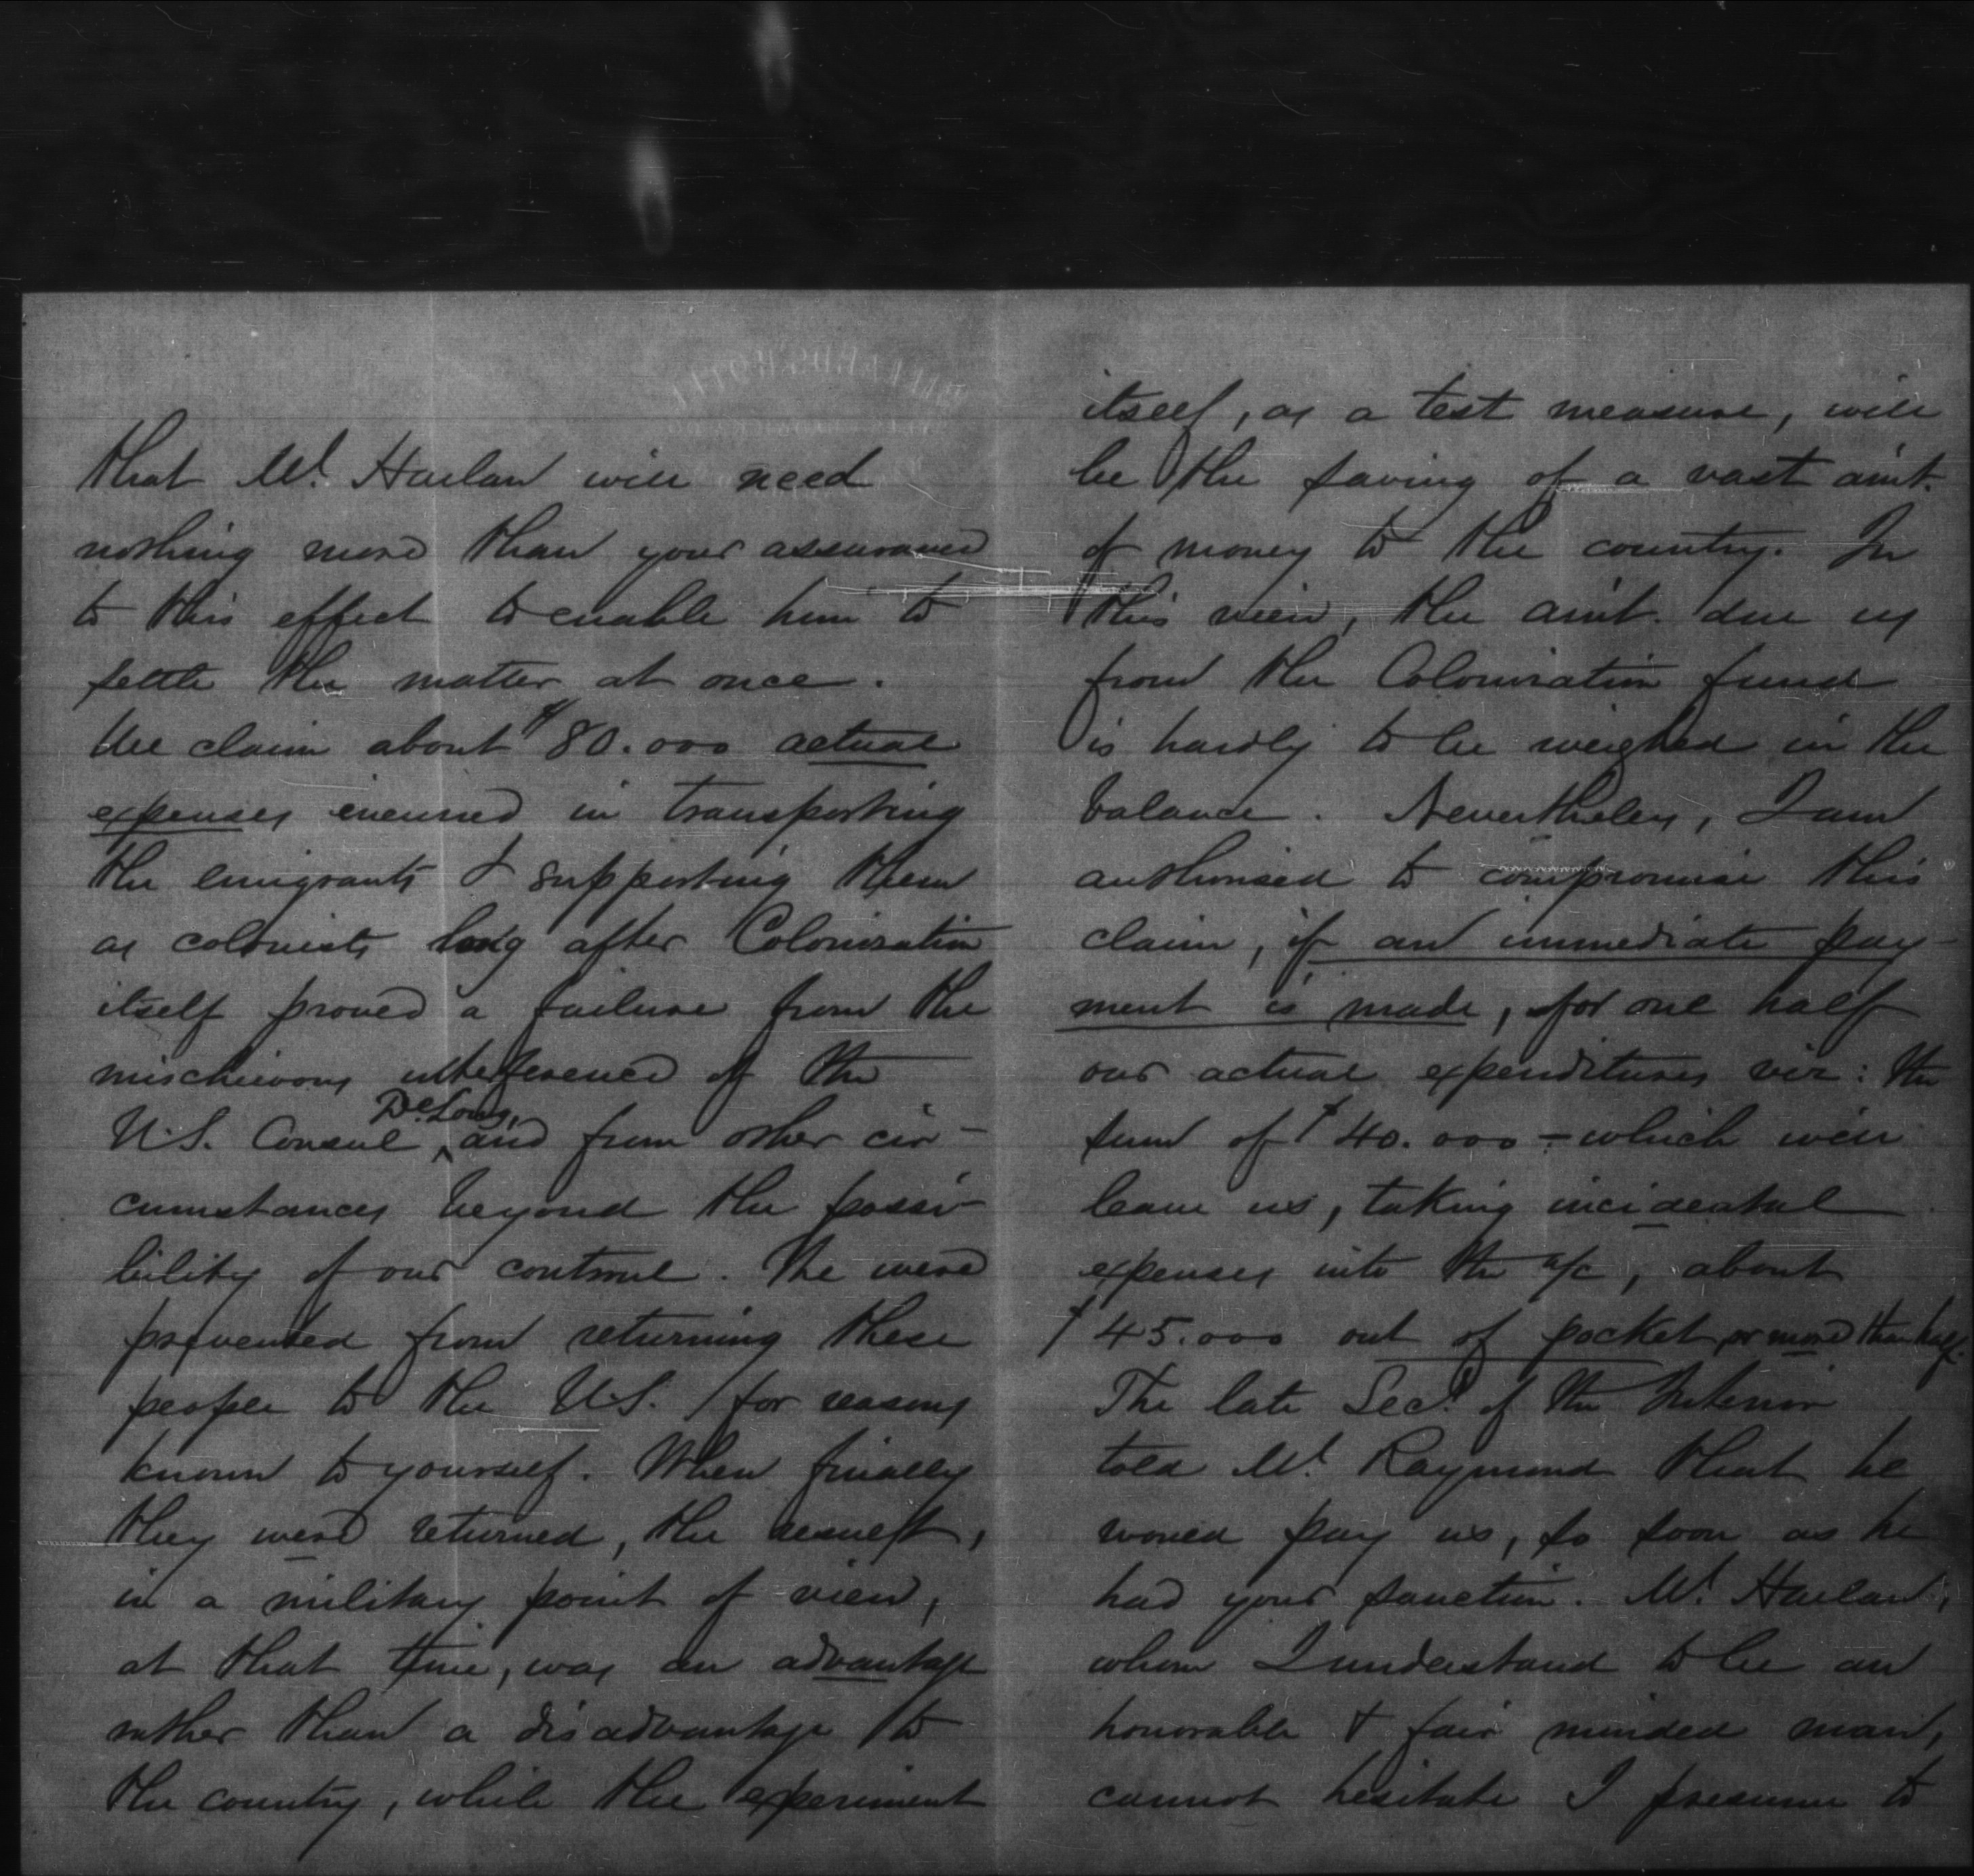 that Mr. Harlan will need
nothing more than your assurance
to this effect to enable him to
settle the matter at once.
We claim about $80.000 actual
expenses incurred in transporting
the emigrants & supporting them
as colonists long after Colonisation
itself proved a failure from the
mischievous interference of the
U.S. Consul De Long, and from other cir-
cumstances beyond the possi-
bility of our control. We were
prevented from returning these
people to the U.S. for reasons
known to yourself. When finally
they were returned, the result,
in a military point of view,
at that time, was an advantage
rather than a disadvantage to
the country, while the experiment
itself, as a test measure, will
be the saving of a vast amt.
of money to the country. In
this view, the amt. due us
from the Colonisation fund
is hardly to be weighed in the
balance. Nevertheless, I am
authorised to compromise this
claim, if an immediate pay-
ment is made, for one half
our actual expenditures viz: the
sum of $40.000 - which will
leave us, taking incidental
expenses into the a/c, about
$45.000 out of pocket or more than half.
The late Secy. of the Interior
told Mr. Raymond that he
would pay us, so soon as he
had your sanction. Mr. Harlan,
whom I understand to be an
honorable & fair minded man,
cannot hesitate I presume to